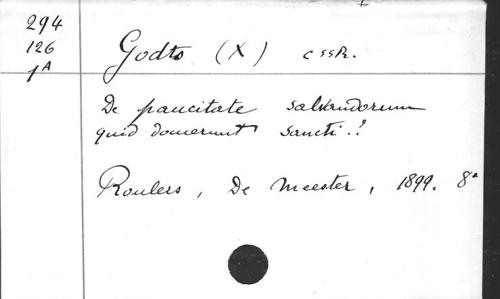 294
126
1A
Godts (X) cssR.
De paucitate salvandorum
quid docuerunt sancti.!
Roulers, De Meester, 1899. 8°